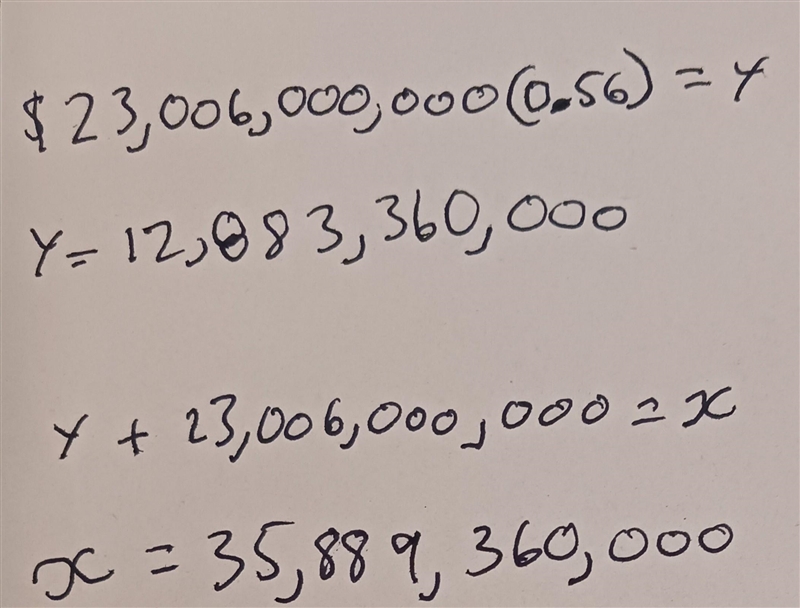 $23,006,000,000(0.56) = Y
Y= 12,883,360,000
Y + 23,006,000,000 = x
x = 35,889,360,000